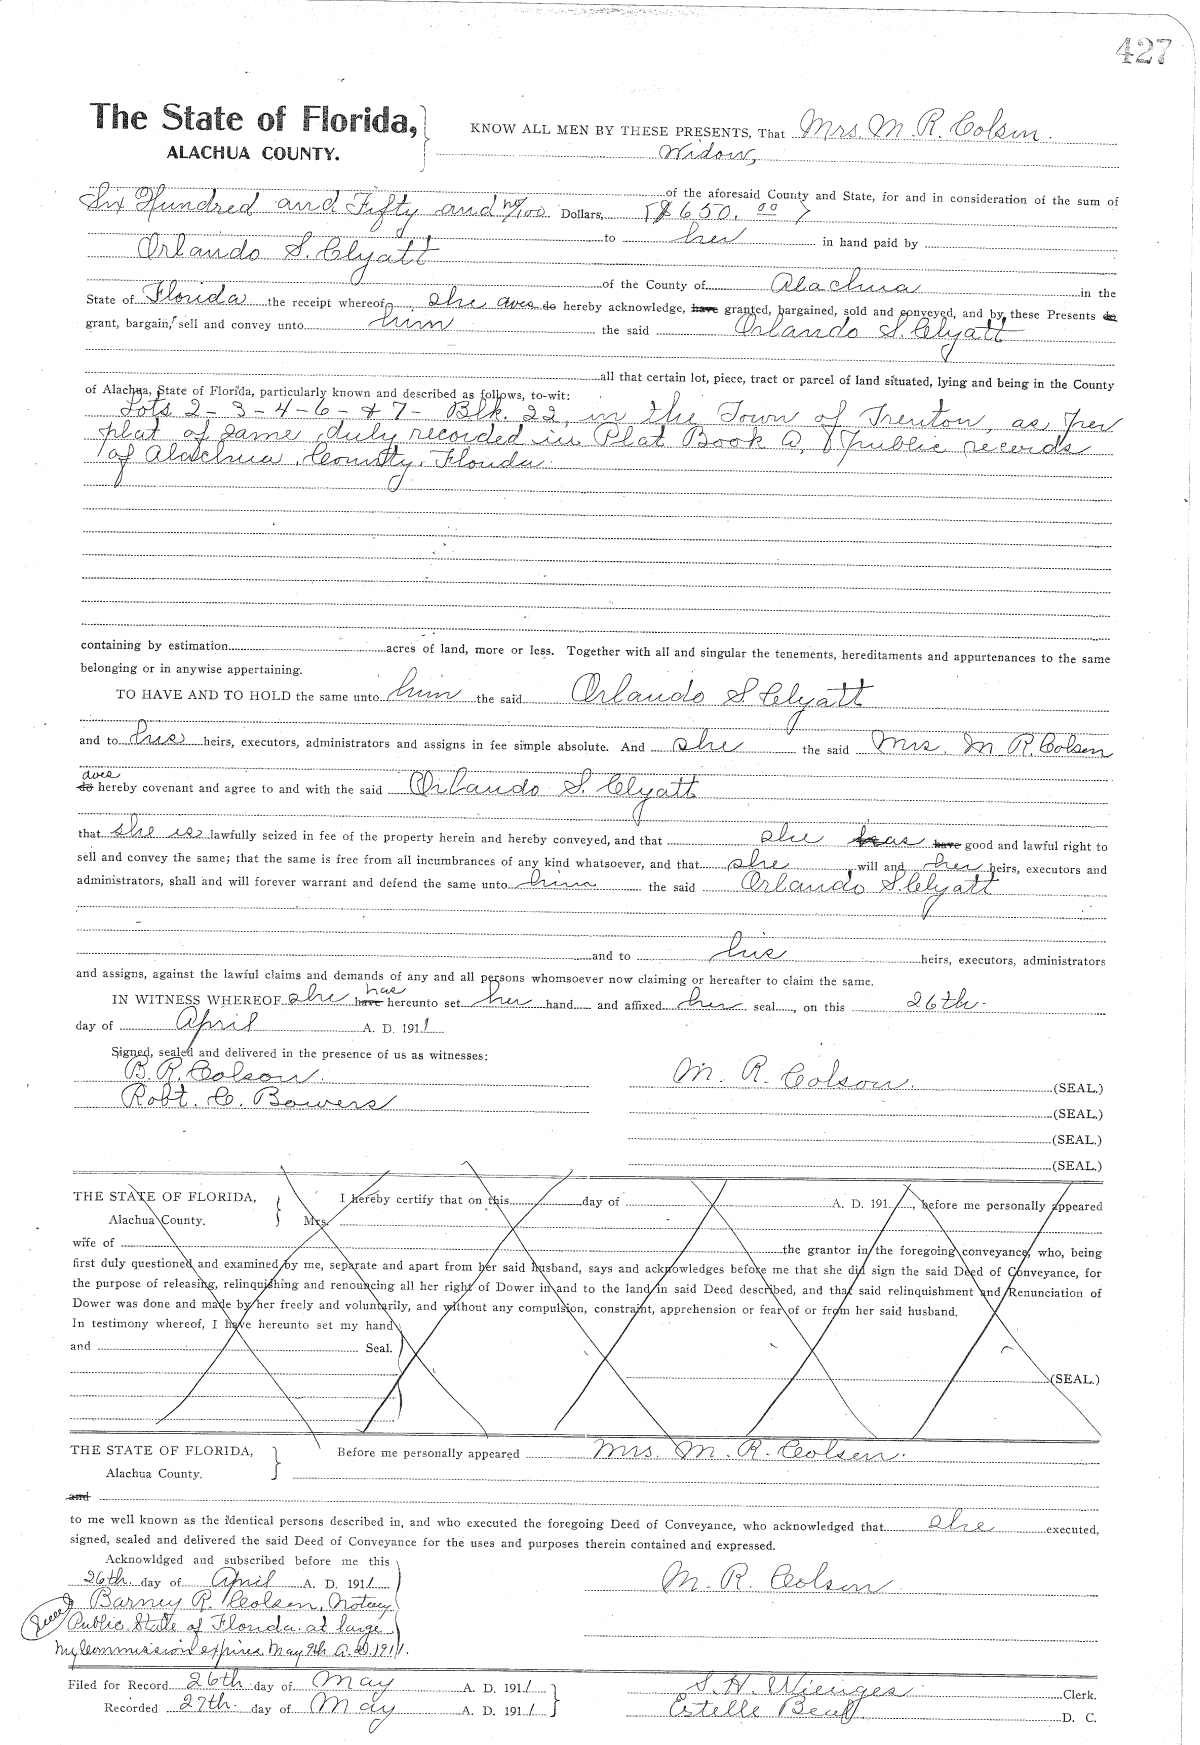 427
The State of Florida, KNOW ALL MEN BY THESE PRESENTS, That Mrs. M. R. Colson.
ALACHUA COUNTY. Widow,
of the aforesaid County and State, for and in consideration of the sum of
Six Hundred and Fifty and no/100 Dollars, ($650.00)
to her in hand paid by
Orlando S. Clyatt
of the County of Alachua in the
State of Florida the receipt whereof she does do hereby acknowledge, have granted, bargained, sold and conveyed, and by these Presents do
grant, bargain, sell and convey unto him the said Orlando S. Clyatt
all that certain lot, piece, tract or parcel of land situated, lying and being in the County
of Alachua, State of Florida, particularly known and described as follows, to-wit:
Lots 2-3-4-6-&7- Blk. 22, in the Town of Trenton, as per
plat of same duly recorded in Plat Book A, public records
of Alachua County, Florida.
containing by estimation acres of land, more or less. Together with all and singular the tenements, hereditaments and appurtenances to the same
belonging or in anywise appertaining.
TO HAVE AND TO HOLD the same unto him the said Orlando S. Clyatt
and to his heirs, executors, administrators and assigns in fee simple absolute. And she the said Mrs. M R. Colson
does
do hereby covenant and agree to and with the said Orlando S. Clyatt
that she is lawfully seized in fee of the property herein and hereby conveyed, and that she has have good and lawful right to
sell and convey the same; that the same is free from all incumbrances of any kind whatsoever, and that she will and her heirs, executors and
administrators, shall and will forever warrant and defend the same unto him the said Orlando S. Clyatt
and to his heirs, executors, administrators
and assigns, against the lawful claims and demands of any and all persons whomsoever now claiming or hereafter to claim the same.
IN WITNESS WHEREOF she has have hereunto set her hand and affixed her seal, on this 26th
day of April A. D. 1911
Signed, sealed and delivered in the presence of us as witnesses:
B. R. Colson. M. R. Colson. (SEAL.)
Robt. C. Bowers (SEAL.)
(SEAL.)
(SEAL.)
THE STATE OF FLORIDA, I hereby certify that on this day of A. D. 191 , before me personally appeared
Alachua County. Mrs.
wife of the grantor in the foregoing conveyance, who, being
first duly questioned and examined by me, separate and apart from her said husband, says and acknowledges before me that she did sign the said Deed of Conveyance, for
the purpose of releasing, relinquishing and renouncing all her right of Dower in and to the land in said Deed described, and that said relinquishment and Renunciation of
Dower was done and made by her freely and voluntarily, and without any compulsion, constraint, apprehension or fear of or from her said husband.
In testimony whereof, I have hereunto set my hand
and Seal.
(SEAL.)
THE STATE OF FLORIDA, Before me personally appeared Mrs. M. R. Colson.
Alachua County.
and
to me well known as the identical persons described in, and who executed the foregoing Deed of Conveyance, who acknowledged that she executed,
signed, sealed and delivered the said Deed of Conveyance for the uses and purposes therein contained and expressed.
Acknowldged and subscribed before me this
26th day of April A. D. 1911 M. R. Colson
Barney R. Colson, Notary
Public State of Florida at large
My Commission expires May 9th A. D. 1911.
Filed for Record 26th day of May A. D. 1911 S. H. Wienges Clerk.
Recorded 27th day of May A. D. 1911 Estelle D. C.